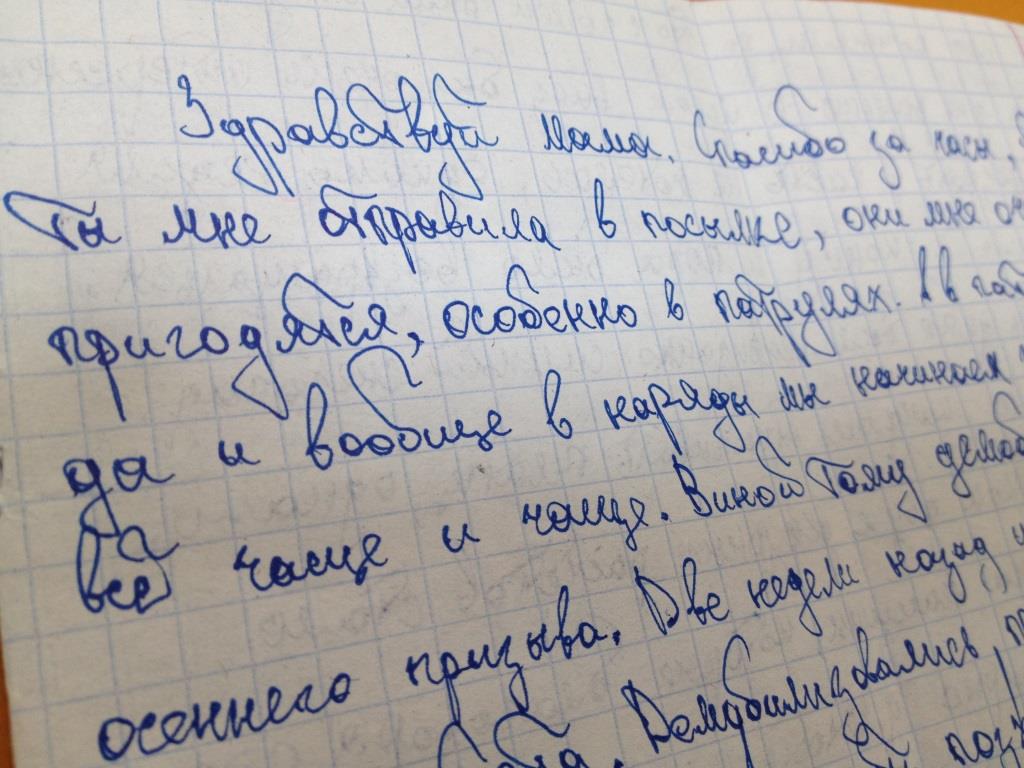 Здравствуй мама. Спасибо за часы,
ты мне отправила в посылке, они мне
пригодятся, особенно в патрулях. А в
да и вообще в наряды мы начинаем
всё чаще и чаще. Виной тому
осеннего призыва. Две недели назад
Демобилизовались,